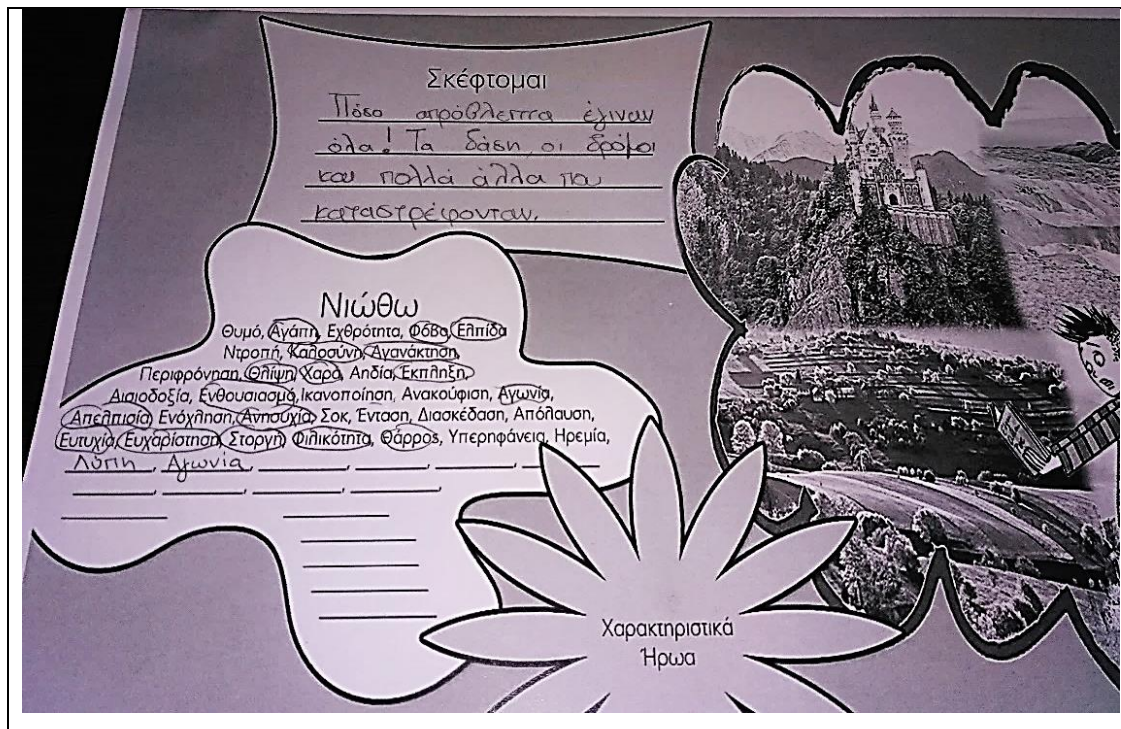 Σκέφτομαι
Πόσο απρόβλεπτα έγιναν
όλα! Τα δάση, οι δρόμοι
και πολλά άλλα που
καταστρέφονταν.
Νιώθω
Θυμό, Αγάπη, Εχθρότητα, Φόβο, Ελπίδα
Ντροπή, Καλοσύνη, Αγανάκτηση,
Περιφρόνηση, Θλίψη, Χαρά, Αηδία, Έκπληξη,
Αισιοδοξία, Ενθουσιασμό, Ικανοποίηση, Ανακούφιση, Αγωνία,
Απελπισία, Ενόχληση, Ανησυχία, Σοκ, Ένταση, Διασκέδαση, Απόλαυση,
Ευτυχία, Ευχαρίστηση, Στοργή, Φιλικότητα, Θάρρος, Υπερηφάνεια, Ηρεμία,
Λύπη, Αγωνία,
Χαρακτηριστικά
Ήρωα